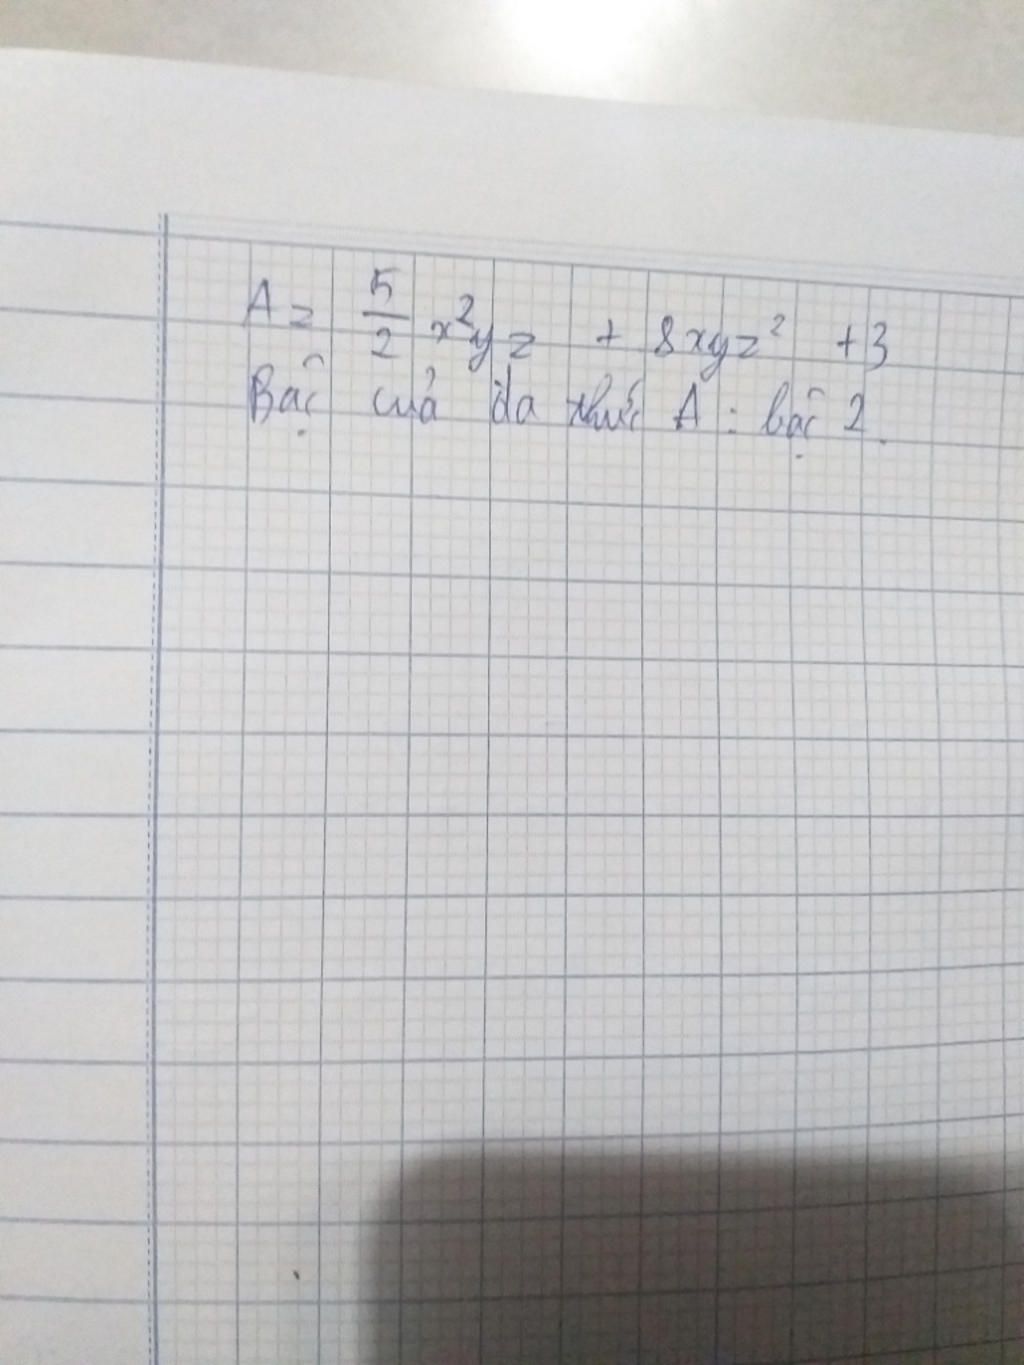 A = 5/2 x²yz + 8xyz² + 3
Bậc của đa thức A : bậc 2.